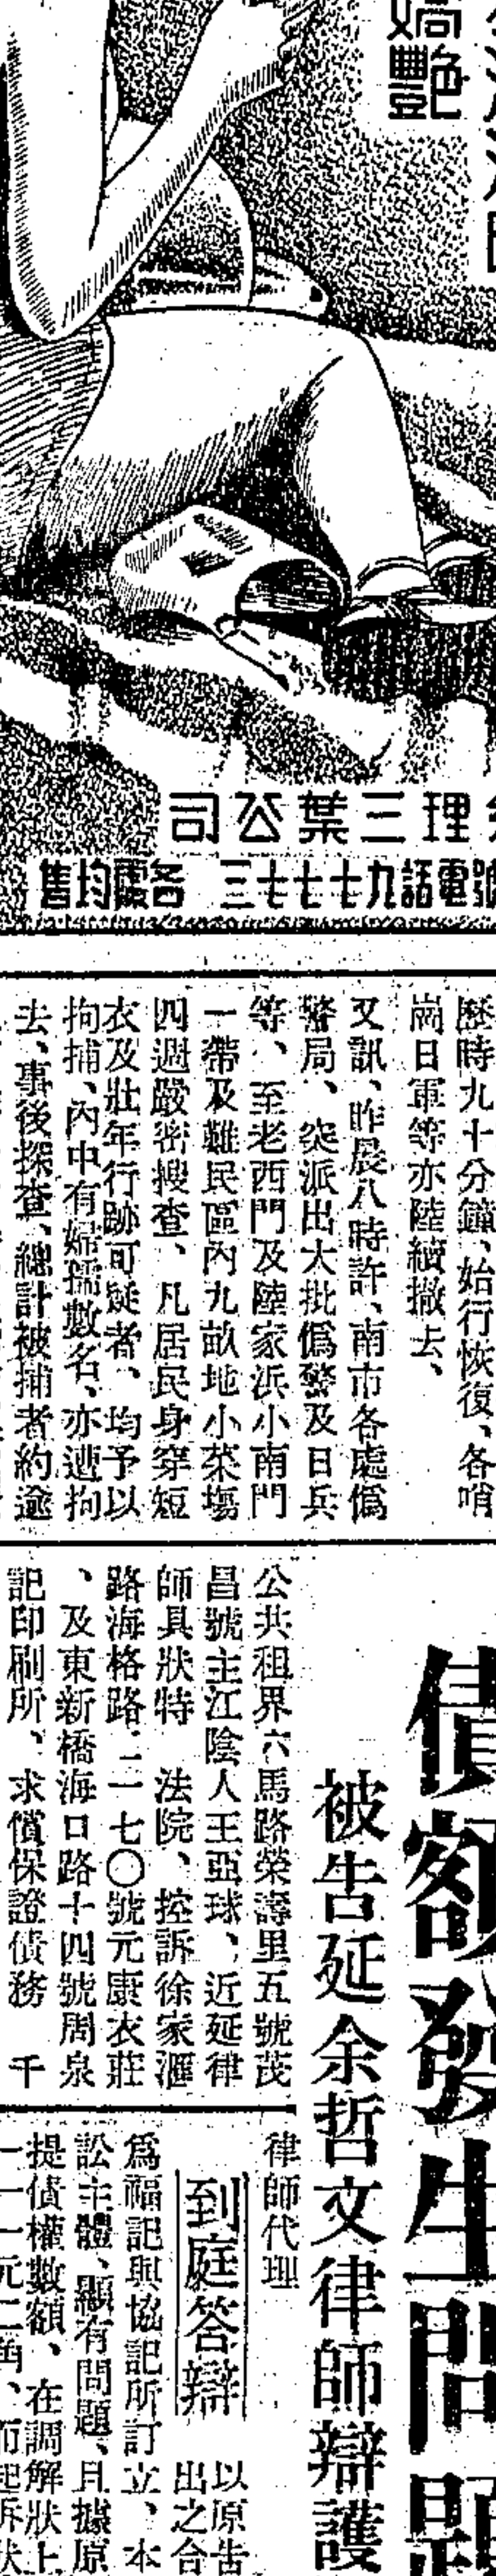 嬌艷
理三葉公司
電話九七七七三 各處均售
歷時九十分鐘、始行恢復、各哨
崗日軍等亦陸續撤去、
又訊、昨晨八時許、南市各處僞
警局、突派出大批僞警及日兵
等、至老西門及陸家浜小南門
一帶及難民區內九畝地小菜場
四週嚴密搜查、凡居民身穿短
衣及壯年行跡可疑者、均予以
拘捕、內中有婦孺數名、亦遭拘
去、事後探查、總計被捕者約逾
債額發生問題
被告延余哲文律師辯護
公共租界六馬路榮壽里五號茂
昌號主江陰人王亞球、近延律
師具狀特 法院、控訴徐家滙
路海格路二一七〇號元康衣莊
、及東新橋海口路十四號周泉
記印刷所、求償保證債務 千
律師代理
到庭答辯
以原告
出之合
爲福記與協記所訂立、本
訟主體、顯有問題、且據原
提債權數額、在調解狀上
一一元二角、而起訴狀